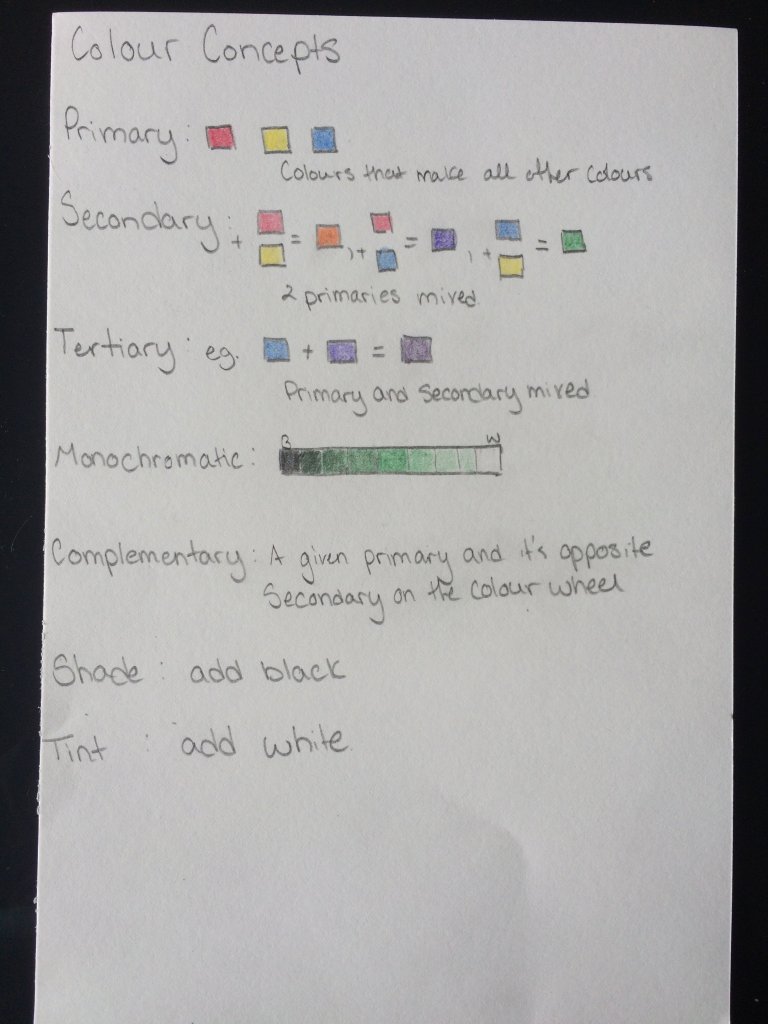 Colour Concepts
Primary:
Colours that make all other colours
Secondary: + = , + = , + =
2 primaries mixed
Tertiary: eg. + =
Primary and Secondary mixed
B W
Monochromatic:
Complementary: A given primary and it's opposite
Secondary on the colour wheel
Shade: add black
Tint : add white.